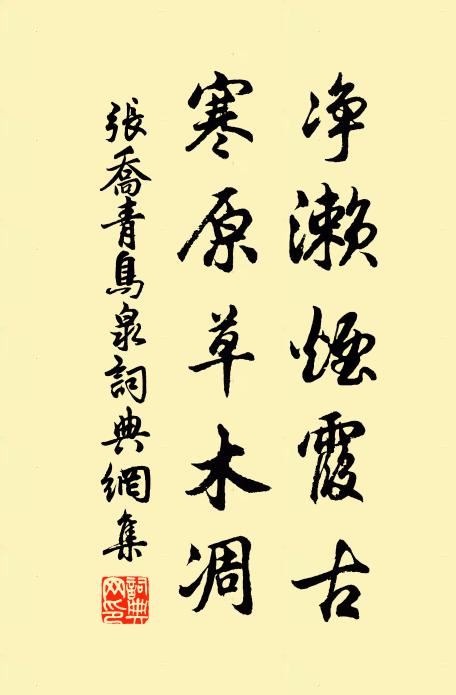 净濑煙霞古
寒原草木凋
張喬青鳥泉詞典網集
詞典网印